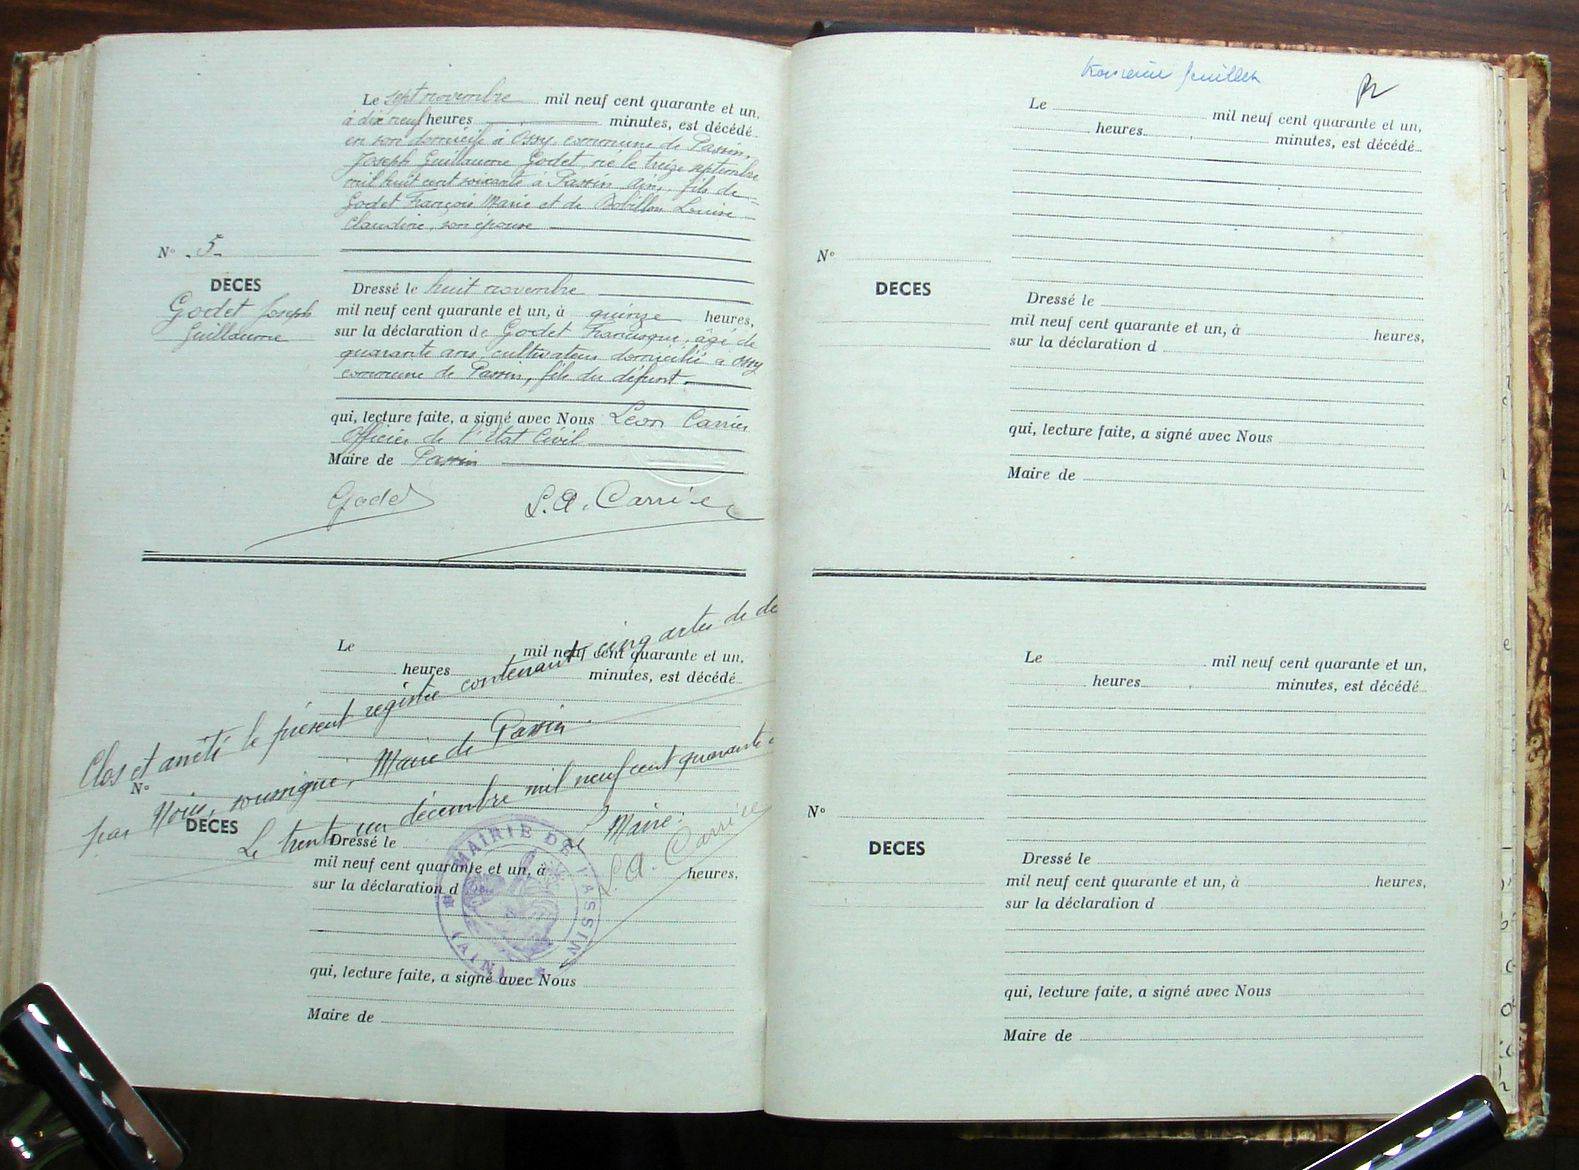 Le sept novembre mil neuf cent quarante et un,
à dix neuf heures minutes, est décédé
en son domicile à Ossy, commune de Passin,
Joseph Guillaume Godet né le treize septembre
mil huit cent soixante à Passin Ain, fils de
Godet François Marie et de Bobillon Louise
Claudine, son épouse
N° 5
DECES
Godet Joseph
Guillaume
Dressé le huit novembre
mil neuf cent quarante et un, à quinze heures,
sur la déclaration de Godet Francisque, âgé de
quarante ans, cultivateur domicilié à Ossy
commune de Passin, fils du défunt.
qui, lecture faite, a signé avec Nous Léon Carrier
Officier de l'état Civil
Maire de Passin
Godet
L.A. Carrier
Le mil neuf cent quarante et un,
heures minutes, est décédé
Clos et arrêté le présent registre contenant cinq actes de dé
par Nous, soussigné, Maire de Passin
Le trente un décembre mil neuf cent quarante
Le Maire.
L.A. Carrier
N°
DECES
Dressé le
mil neuf cent quarante et un, à heures,
sur la déclaration d
MAIRIE DE PASSIN
(AIN)
qui, lecture faite, a signé avec Nous
Maire de
troisième feuillet
Le mil neuf cent quarante et un,
heures minutes, est décédé
N°
DECES
Dressé le
mil neuf cent quarante et un, à heures,
sur la déclaration d
qui, lecture faite, a signé avec Nous
Maire de
Le mil neuf cent quarante et un,
heures minutes, est décédé
N°
DECES
Dressé le
mil neuf cent quarante et un, à heures,
sur la déclaration d
qui, lecture faite, a signé avec Nous
Maire de